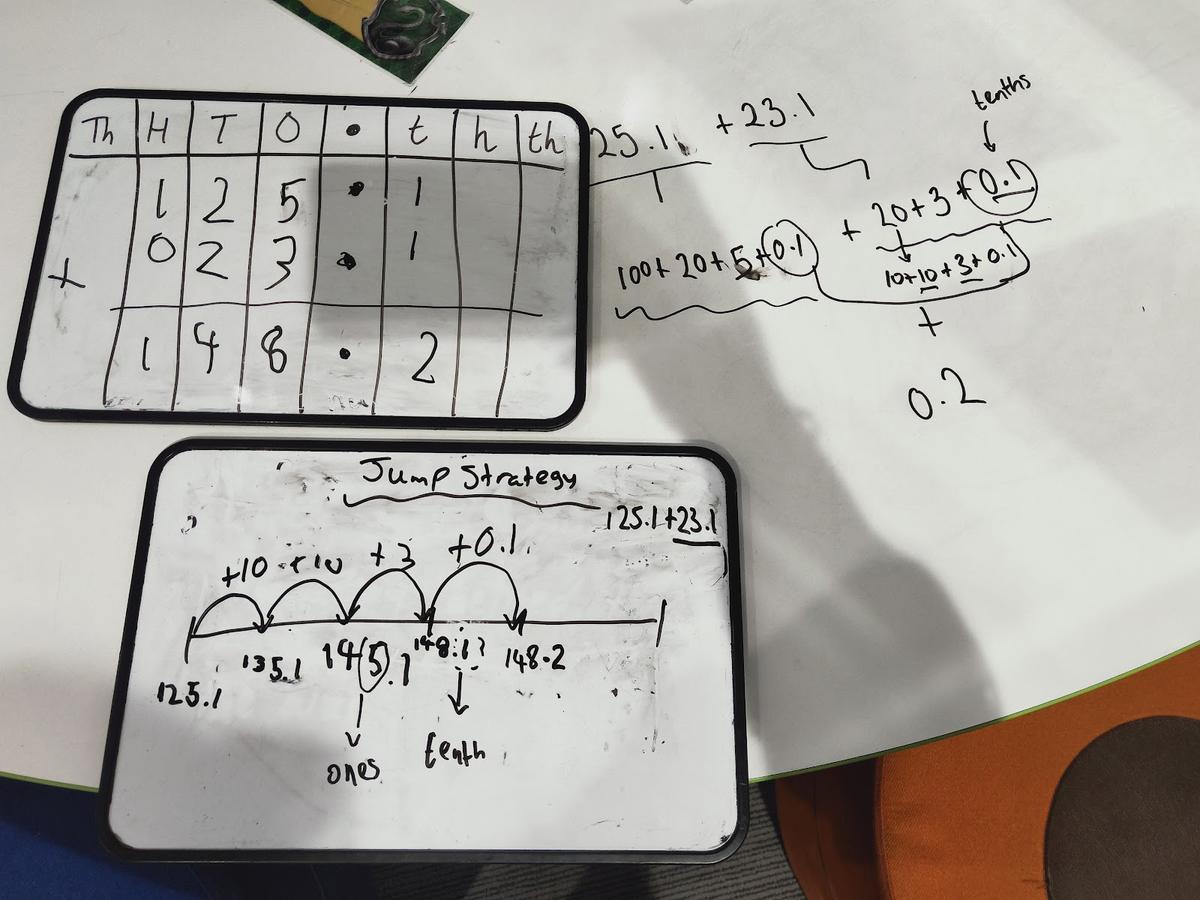 Th H T O . t h th
1 2 5 . 1
+ 0 2 3 . 1
1 4 8 . 2
25.1 + 23.1
tenths
100+20+5+0.1
+ 20+3+0.1
10+10+3+0.1
+
0.2
Jump Strategy
125.1+23.1
+10 +10 +3 +0.1
125.1 135.1 145.1 148.1 148.2
ones tenth